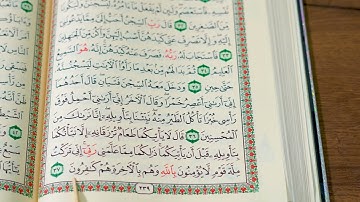 مِّنَ ٱلصَّٰغِرِينَ ٣٢ قَالَ رَبِّ ٱلسِّجْنُ أَحَبُّ إِلَيَّ مِمَّا يَدْعُونَنِيٓ
إِلَيْهِ وَإِلَّا تَصْرِفْ عَنِّي كَيْدَهُنَّ أَصْبُ إِلَيْهِنَّ وَأَكُن مِّنَ ٱلْجَٰهِلِينَ
٣٣ فَٱسْتَجَابَ لَهُۥ رَبُّهُۥ فَصَرَفَ عَنْهُ كَيْدَهُنَّ إِنَّهُۥ هُوَ ٱلسَّمِيعُ
ٱلْعَلِيمُ ٣٤ ثُمَّ بَدَا لَهُم مِّنۢ بَعْدِ مَا رَأَوُا۟ ٱلْءَايَٰتِ لَيَسْجُنُنَّهُۥ
حَتَّىٰ حِينٍ ٣٥ وَدَخَلَ مَعَهُ ٱلسِّجْنَ فَتَيَانِ قَالَ أَحَدُهُمَآ
إِنِّيٓ أَرَىٰنِيٓ أَعْصِرُ خَمْرًا وَقَالَ ٱلْءَاخَرُ إِنِّيٓ أَرَىٰنِيٓ أَحْمِلُ فَوْقَ
رَأْسِي خُبْزًا تَأْكُلُ ٱلطَّيْرُ مِنْهُ نَبِّئْنَا بِتَأْوِيلِهِۦٓ إِنَّا نَرَىٰكَ مِنَ
ٱلْمُحْسِنِينَ ٣٦ قَالَ لَا يَأْتِيكُمَا طَعَامٌ تُرْزَقَانِهِۦٓ إِلَّا نَبَّأْتُكُمَا
بِتَأْوِيلِهِۦ قَبْلَ أَن يَأْتِيَكُمَا ذَٰلِكُمَا مِمَّا عَلَّمَنِي رَبِّيٓ إِنِّي تَرَكْتُ
مِلَّةَ قَوْمٍ لَّا يُؤْمِنُونَ بِٱللَّهِ وَهُم بِٱلْءَاخِرَةِ هُمْ كَٰفِرُونَ ٣٧
٢٣٩